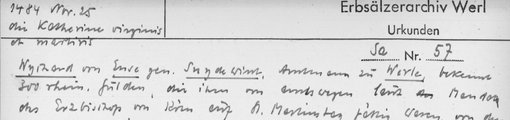 1484 Nov. 25
die Katherine virginis
et martiris
Erbsälzerarchiv Werl
Urkunden
Sa Nr. 57
von Ense gen. Snydewint, Amtmann zu Werle, bekennt
300 rhein. Gulden, die ihm von amtswegen laut
des Erzbischofs von Köln auf waren, von